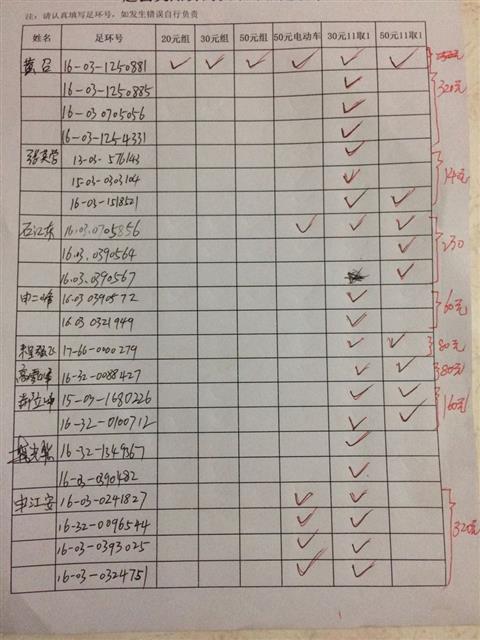 注：请认真填写足环号，如发生错误自行负责
姓名 足环号 20元组 30元组 50元组 50元电动车 30元11取1 50元11取1
黄召 16-03-1250881 ✓ ✓ ✓ ✓ ✓ ✓
16-03-1250885 ✓ 320元
16-03 0705056 ✓
16-03-1254331 ✓
张英营 13-03-576143 ✓
15-03-0303104 ✓ 140元
16-03-1518521 ✓ ✓
石江东 16.03.0705856 ✓ ✓ ✓
16.03.0390564 ✓ 230
16.03.0390567 ✓
申二峰 16.03 0390572 ✓ 60元
16.03 0321949 ✓
17-66-0000279 ✓ ✓ 80元
16-32-0088427 ✓ ✓ 80元
15-03-1680226 ✓ ✓ 160元
16-32-0100712 ✓ ✓
16-32-1349367 ✓
16-03-0390482 ✓
申江安 16-03-0241827 ✓ ✓
16-32-0096544 ✓ ✓ 320元
16-03-0393025 ✓ ✓
16-03-0324751 ✓ ✓